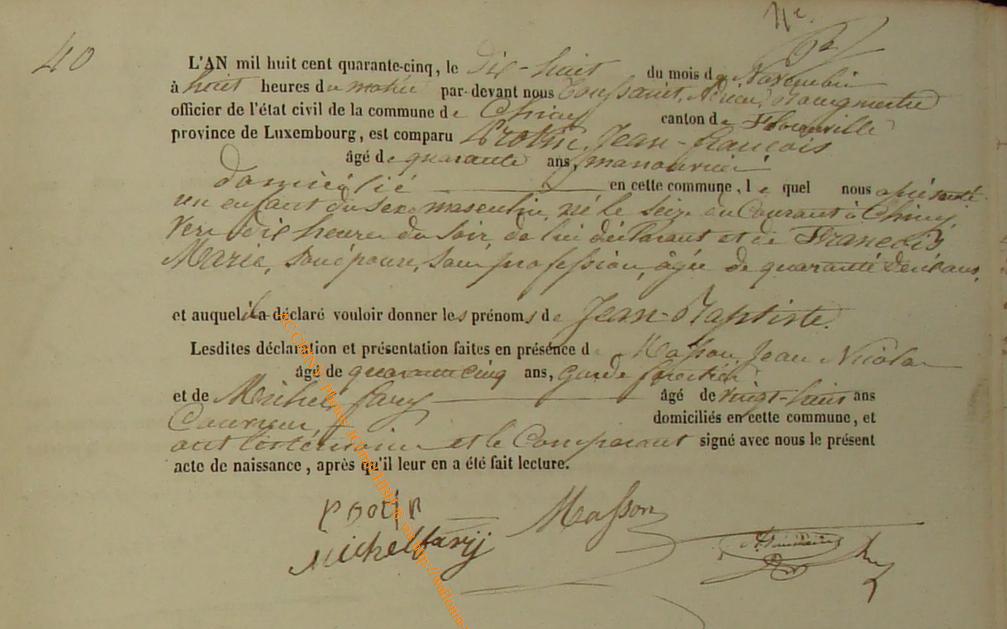 40
L'AN mil huit cent quarante-cinq, le dix-huit du mois de Novembre
à huit heures du matin par-devant nous Toussaint,
officier de l'état civil de la commune de Chiny canton de Florenville
province de Luxembourg, est comparu Protin, Jean-françois
âgé de quarante ans, manouvrier
domicilié en cette commune, le quel nous a présenté
un enfant du sexe masculin, né le seize du Courant à Chiny
Vers dix heures du soir, de lui déclarant et de François
Marie, son épouse, sans profession, âgée de quarante deux ans,
et auquel il a déclaré vouloir donner les prénoms de Jean-Baptiste.
Lesdites déclaration et présentation faites en présence de Masson, Jean Nicolas
âgé de quarante cinq ans, Garde forestier
et de Michel fary âgé de vingt-huit ans
domiciliés en cette commune, et
ont les témoins et le Comparant signé avec nous le présent
acte de naissance, après qu'il leur en a été fait lecture.
protin
Masson
Michel farij